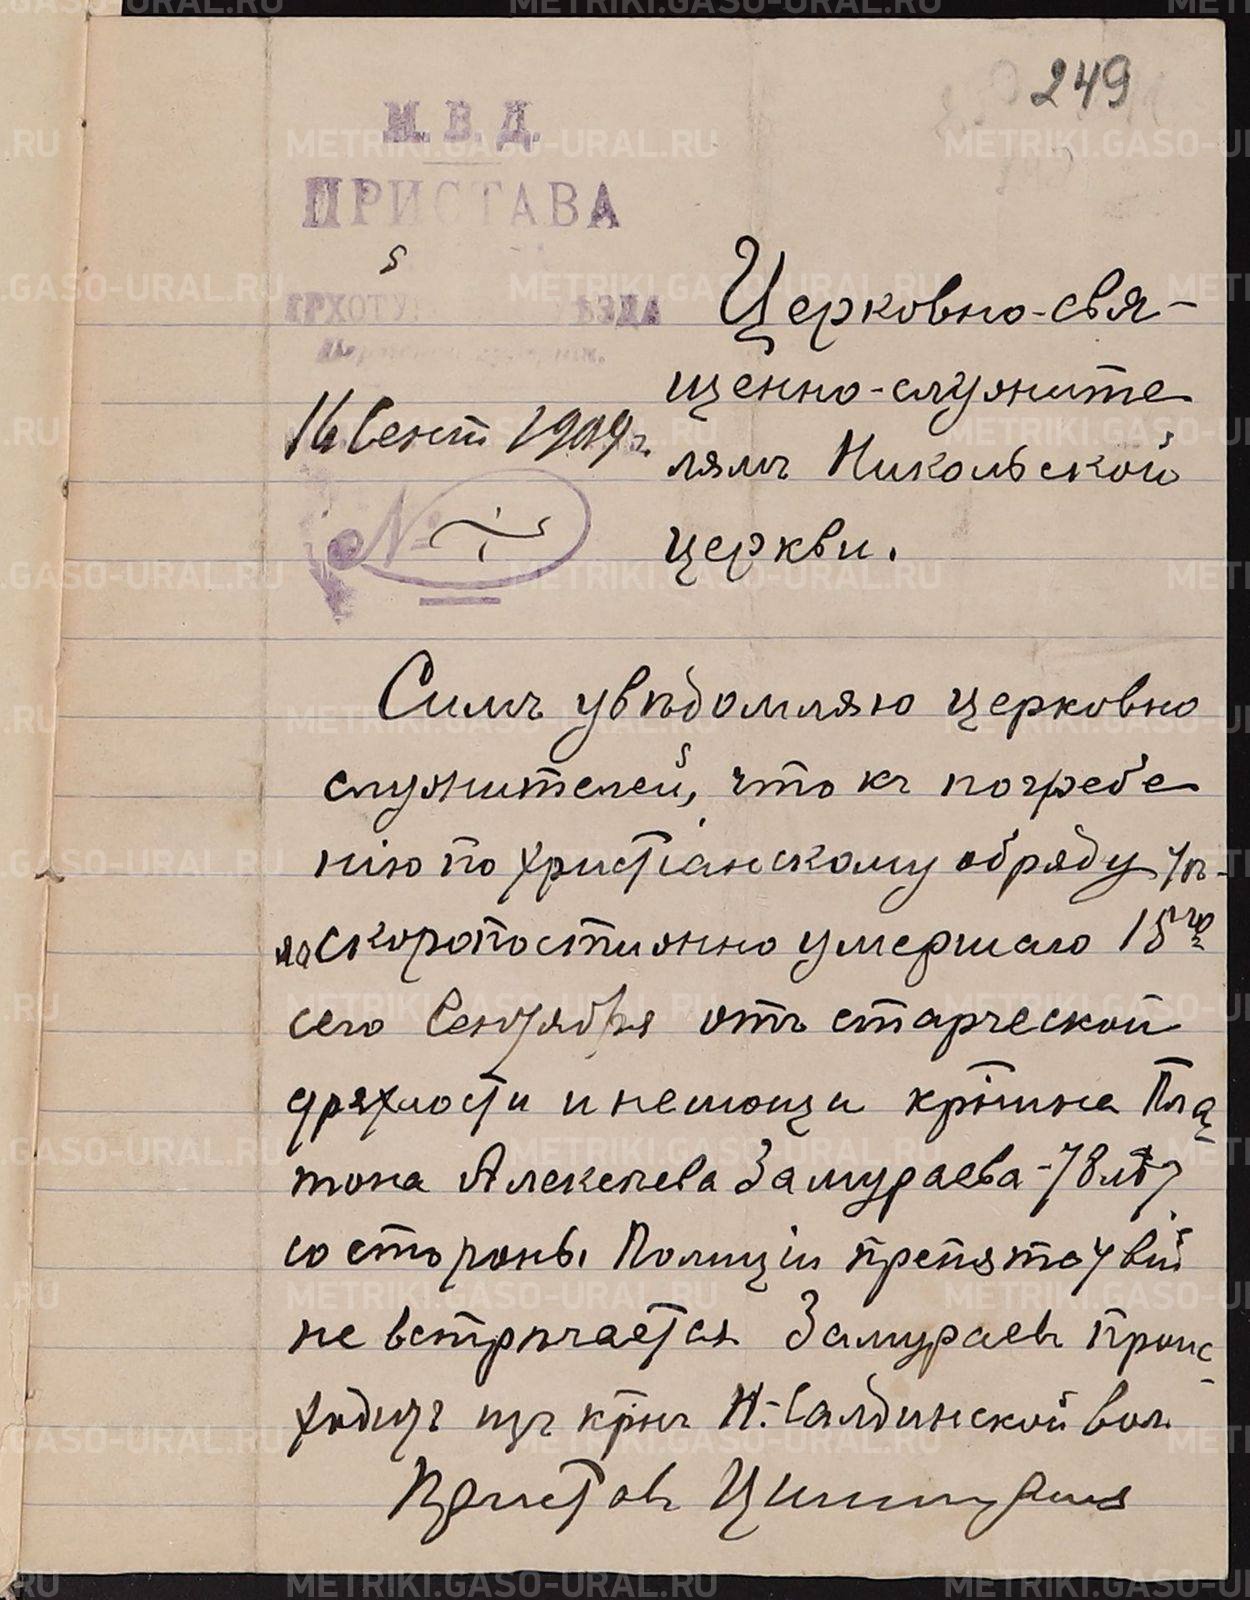 249
М. В. Д.
ПРИСТАВА
5
ЕРХОТУ ѢЗДА
Пермской губерніи.
16 Сент 1909 г.
№
Церковно-свя-
щенно-служите
лямъ Никольской
церкви.
Симъ увѣдомляю церковно
служителей, что къ погребе
нію по христіанскому обряду тѣ-
ла скоропостижно умершаго 15го
сего Сентября отъ старческой
дряхлости и немощи кр-нина Пла
тона Алексѣева Замураева - 78 лѣт
со стороны Полиціи препятствій
не встрѣчается Замураевъ проис
ходитъ изъ кр-нъ Н.-Салдинской вол
Приставъ
METRIKI.GASO-URAL.RU